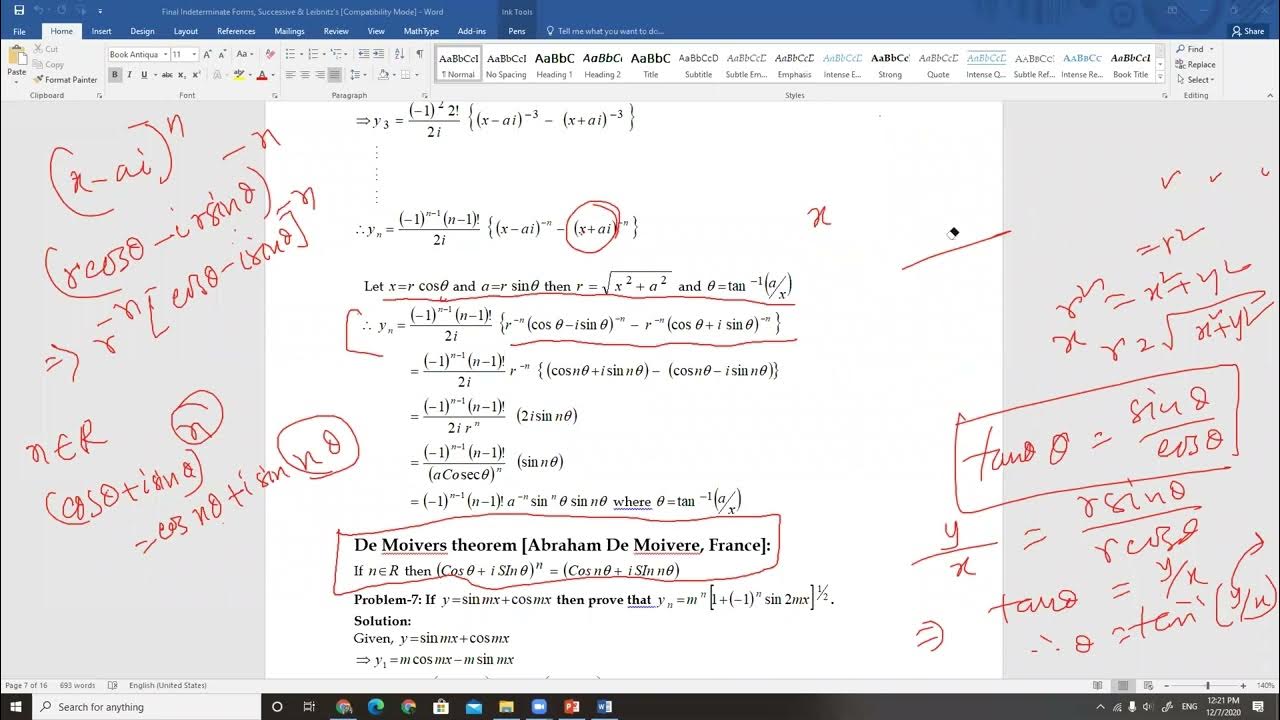 Final Indeterminate Forms, Successive & Leibnitz's [Compatibility Mode] - Word
Ink Tools
File Home Insert Design Layout References Mailings Review View MathType Add-ins Pens Tell me what you want to do...
Share
Cut
Copy
Format Painter
Paste
Clipboard
Book Antiqua 11
Font
Paragraph
AaBbCcI AaBbCcI AaBbC AaBbCc AaBbC AaBbCcD AaBbCcI AaBbCcI AaBbCcI AaBbCc AaBbCcI AaBbCcI AaBbCcI AaBbCcI AaBbCcI
¶ Normal No Spacing Heading 1 Heading 2 Title Subtitle Subtle Em... Emphasis Intense E... Strong Quote Intense Q... Subtle Ref... Intense Re... Book Title
Styles
Find
Replace
Select
Editing
⇒ y₃ = (-1)² 2! / 2i {(x-ai)⁻³ - (x+ai)⁻³}
∴ yₙ = (-1)ⁿ⁻¹(n-1)! / 2i {(x-ai)⁻ⁿ - (x+ai)⁻ⁿ}
Let x=r cosθ and a=r sinθ then r = √(x² + a²) and θ=tan⁻¹(a/x)
∴ yₙ = (-1)ⁿ⁻¹(n-1)! / 2i {r⁻ⁿ(cos θ-i sin θ)⁻ⁿ - r⁻ⁿ(cos θ+i sin θ)⁻ⁿ}
= (-1)ⁿ⁻¹(n-1)! / 2i r⁻ⁿ {(cos nθ+i sin nθ)- (cos nθ-i sin nθ)}
= (-1)ⁿ⁻¹(n-1)! / 2i rⁿ (2i sin nθ)
= (-1)ⁿ⁻¹(n-1)! / (aCosecθ)ⁿ (sin nθ)
= (-1)ⁿ⁻¹(n-1)! a⁻ⁿ sinⁿ θ sin nθ where θ=tan⁻¹(a/x)
De Moivers theorem [Abraham De Moivere, France]:
If n∈R then (Cos θ+ i SIn θ)ⁿ = (Cos nθ+ i SIn nθ)
Problem-7: If y=sin mx+cos mx then prove that yₙ = mⁿ[1+(-1)ⁿ sin 2mx]^½.
Solution:
Given, y=sin mx+cos mx
⇒ y₁ = m cos mx-m sin mx
(x-ai)ⁿ
(rcosθ-irsinθ)⁻ⁿ
⇒ r⁻ⁿ[cosθ-isinθ]⁻ⁿ
n∈R
(cosθ+isinθ)ⁿ
=cos nθ+i sin nθ
x
=r²
r²=x²+y²
x
r=√(x²+y²)
tanθ = sinθ/cosθ
y/x = rsinθ/rcosθ
⇒ tanθ = y/x
∴ θ=tan⁻¹(y/x)
Page 7 of 16 693 words English (United States)
140%
Search for anything
12:21 PM
12/7/2020